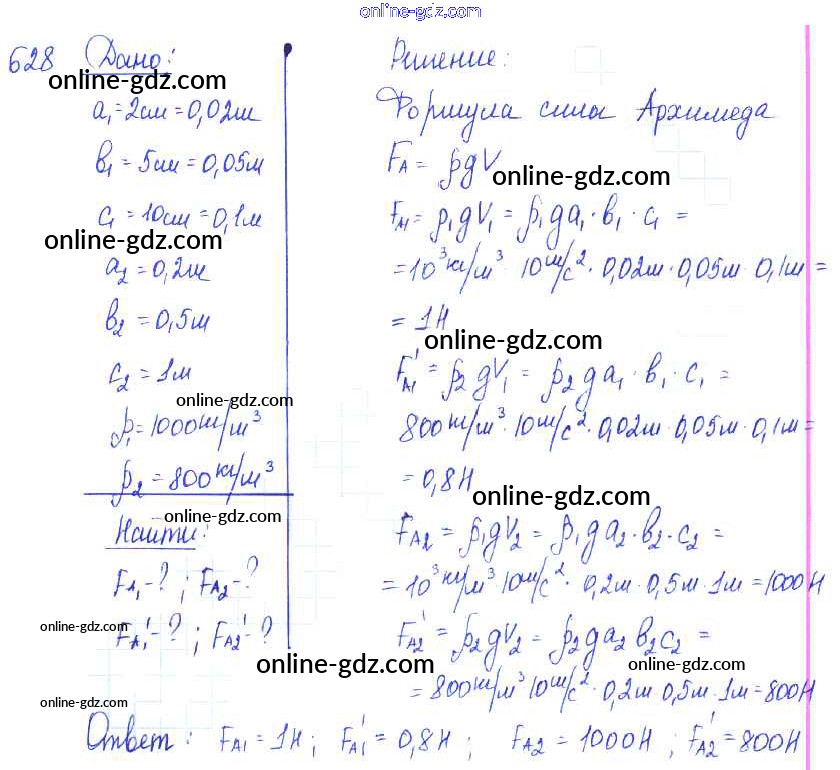 online-gdz.com
628 Дано:
online-gdz.com
a₁=2см=0,02м
b₁=5см=0,05м
c₁=10см=0,1м
online-gdz.com
a₂=0,2м
b₂=0,5м
c₂=1м
online-gdz.com
ρ₁=1000кг/м³
ρ₂=800кг/м³
Найти:
online-gdz.com
F_A₁-?; F_A₂-?
online-gdz.com
F_A₁'-?; F_A₂'-?
online-gdz.com
Решение:
Формула силы Архимеда
F_A=ρgV
online-gdz.com
F_A₁=ρ₁gV₁=ρ₁ga₁·b₁·c₁=
=10³кг/м³·10м/с²·0,02м·0,05м·0,1м=
=1Н
online-gdz.com
F_A₁'=ρ₂gV₁=ρ₂ga₁·b₁·c₁=
800кг/м³·10м/с²·0,02м·0,05м·0,1м=
=0,8Н
online-gdz.com
F_A₂=ρ₁gV₂=ρ₁ga₂·b₂·c₂=
=10³кг/м³10м/с²·0,2м·0,5м·1м=1000Н
online-gdz.com
F_A₂'=ρ₂gV₂=ρ₂ga₂b₂c₂=
online-gdz.com
=800кг/м³10м/с²·0,2м0,5м·1м=800Н
online-gdz.com
Ответ: F_A₁=1Н; F_A₁'=0,8Н; F_A₂=1000Н; F_A₂'=800Н